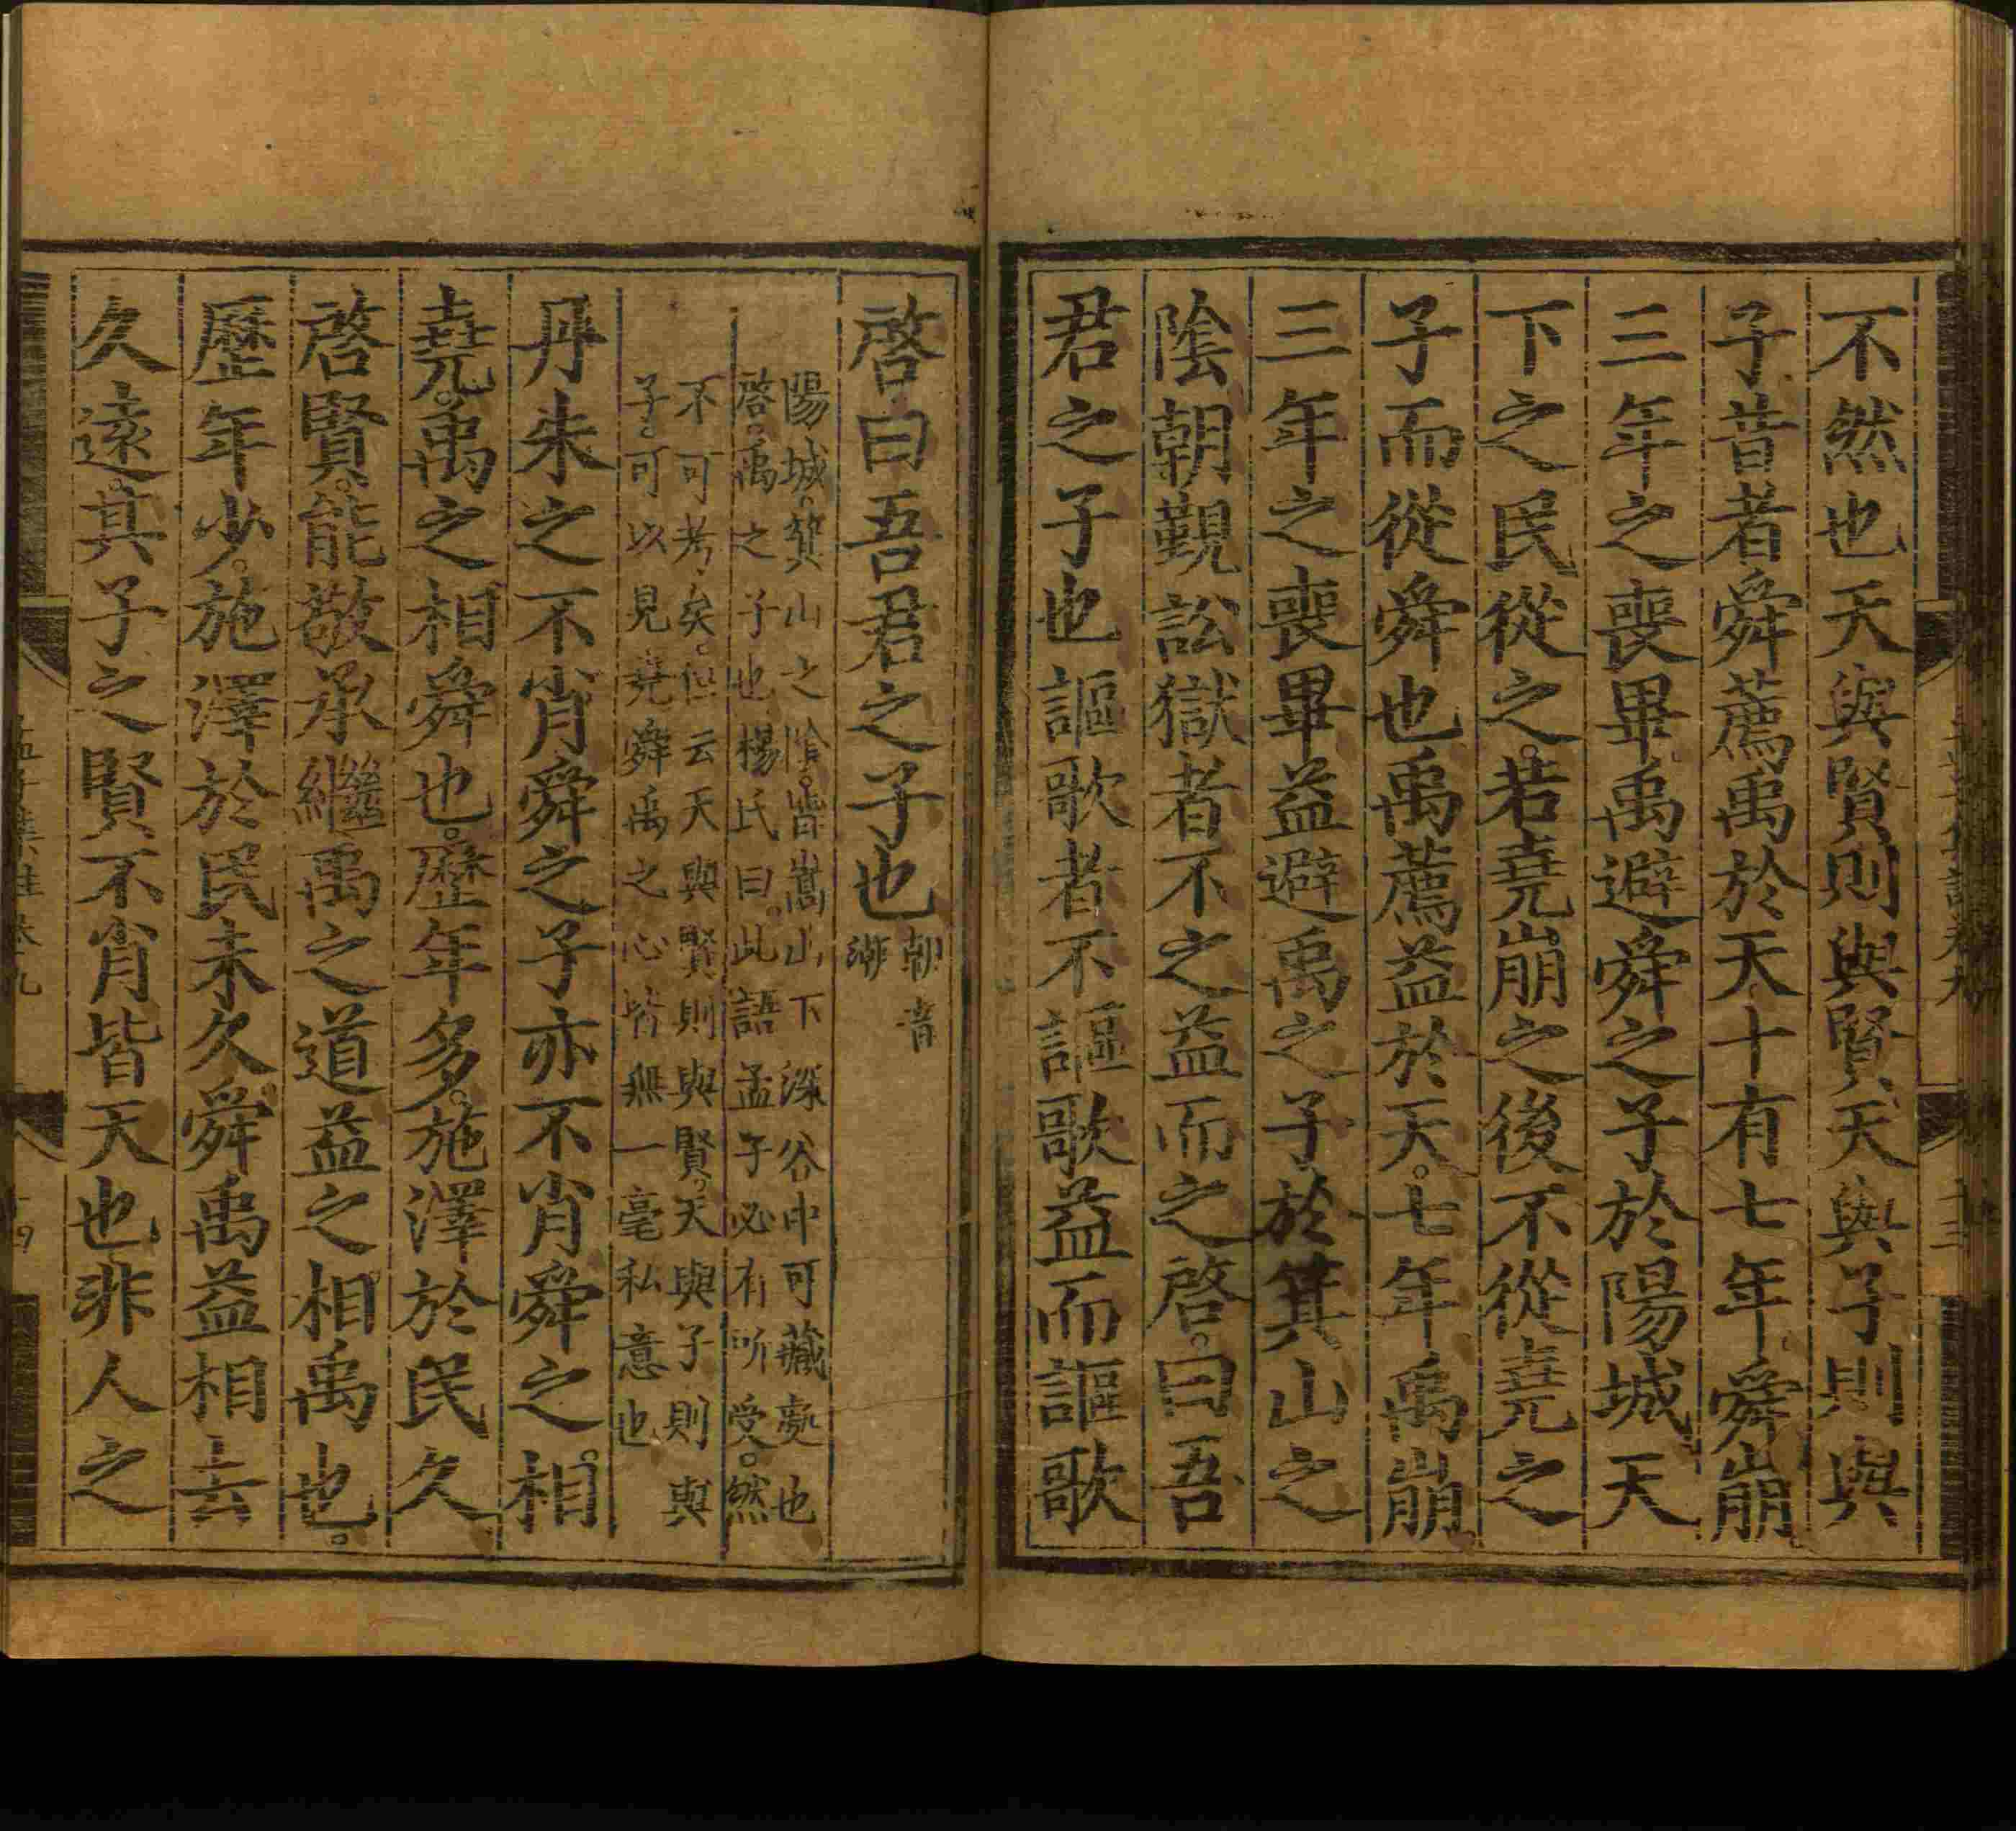 不然也天與賢則與賢天與子則與
子昔者舜薦禹於天十有七年舜崩
三年之喪畢禹避舜之子於陽城天
下之民從之若堯崩之後不從堯之
子而從舜也禹薦益於天七年禹崩
三年之喪畢益避禹之子於箕山之
陰朝覲訟獄者不之益而之啓曰吾
君之子也謳歌者不謳歌益而謳歌
啓曰吾君之子也朝音
潮
陽城箕山之陰皆嵩山下深谷中可藏處也
啓禹之子也楊氏曰此語孟子必有所受然
不可考矣但云天與賢則與賢天與子則與
子可以見堯舜禹之心皆無一毫私意也
丹朱之不肖舜之子亦不肖舜之相
堯禹之相舜也歷年多施澤於民久
啓賢能敬承繼禹之道益之相禹也
歷年少施澤於民未久舜禹益相去
久遠其子之賢不肖皆天也非人之